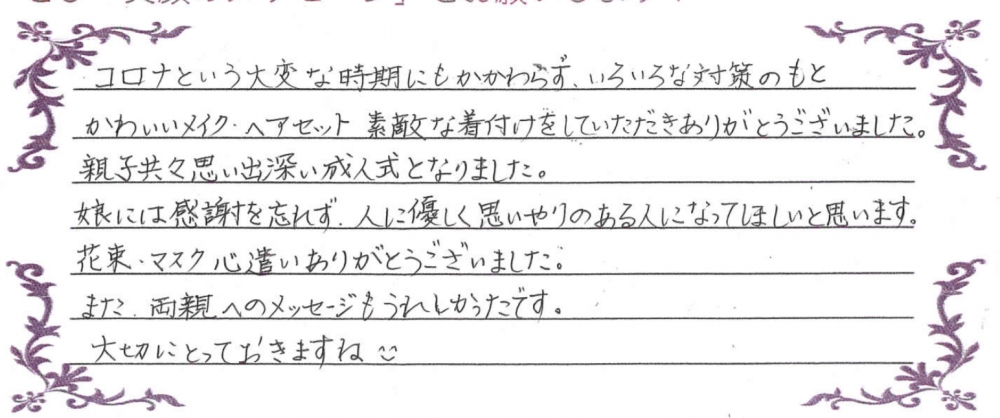 コロナという大変な時期にもかかわらず、いろいろな対策のもと
かわいいメイク・ヘアセット 素敵な着付けをしていただきありがとうございました。
親子共々思い出深い成人式となりました。
娘には感謝を忘れず、人に優しく思いやりのある人になってほしいと思います。
花束・マスク心遣いありがとうございました。
また、両親へのメッセージもうれしかったです。
大切にとっておきますね